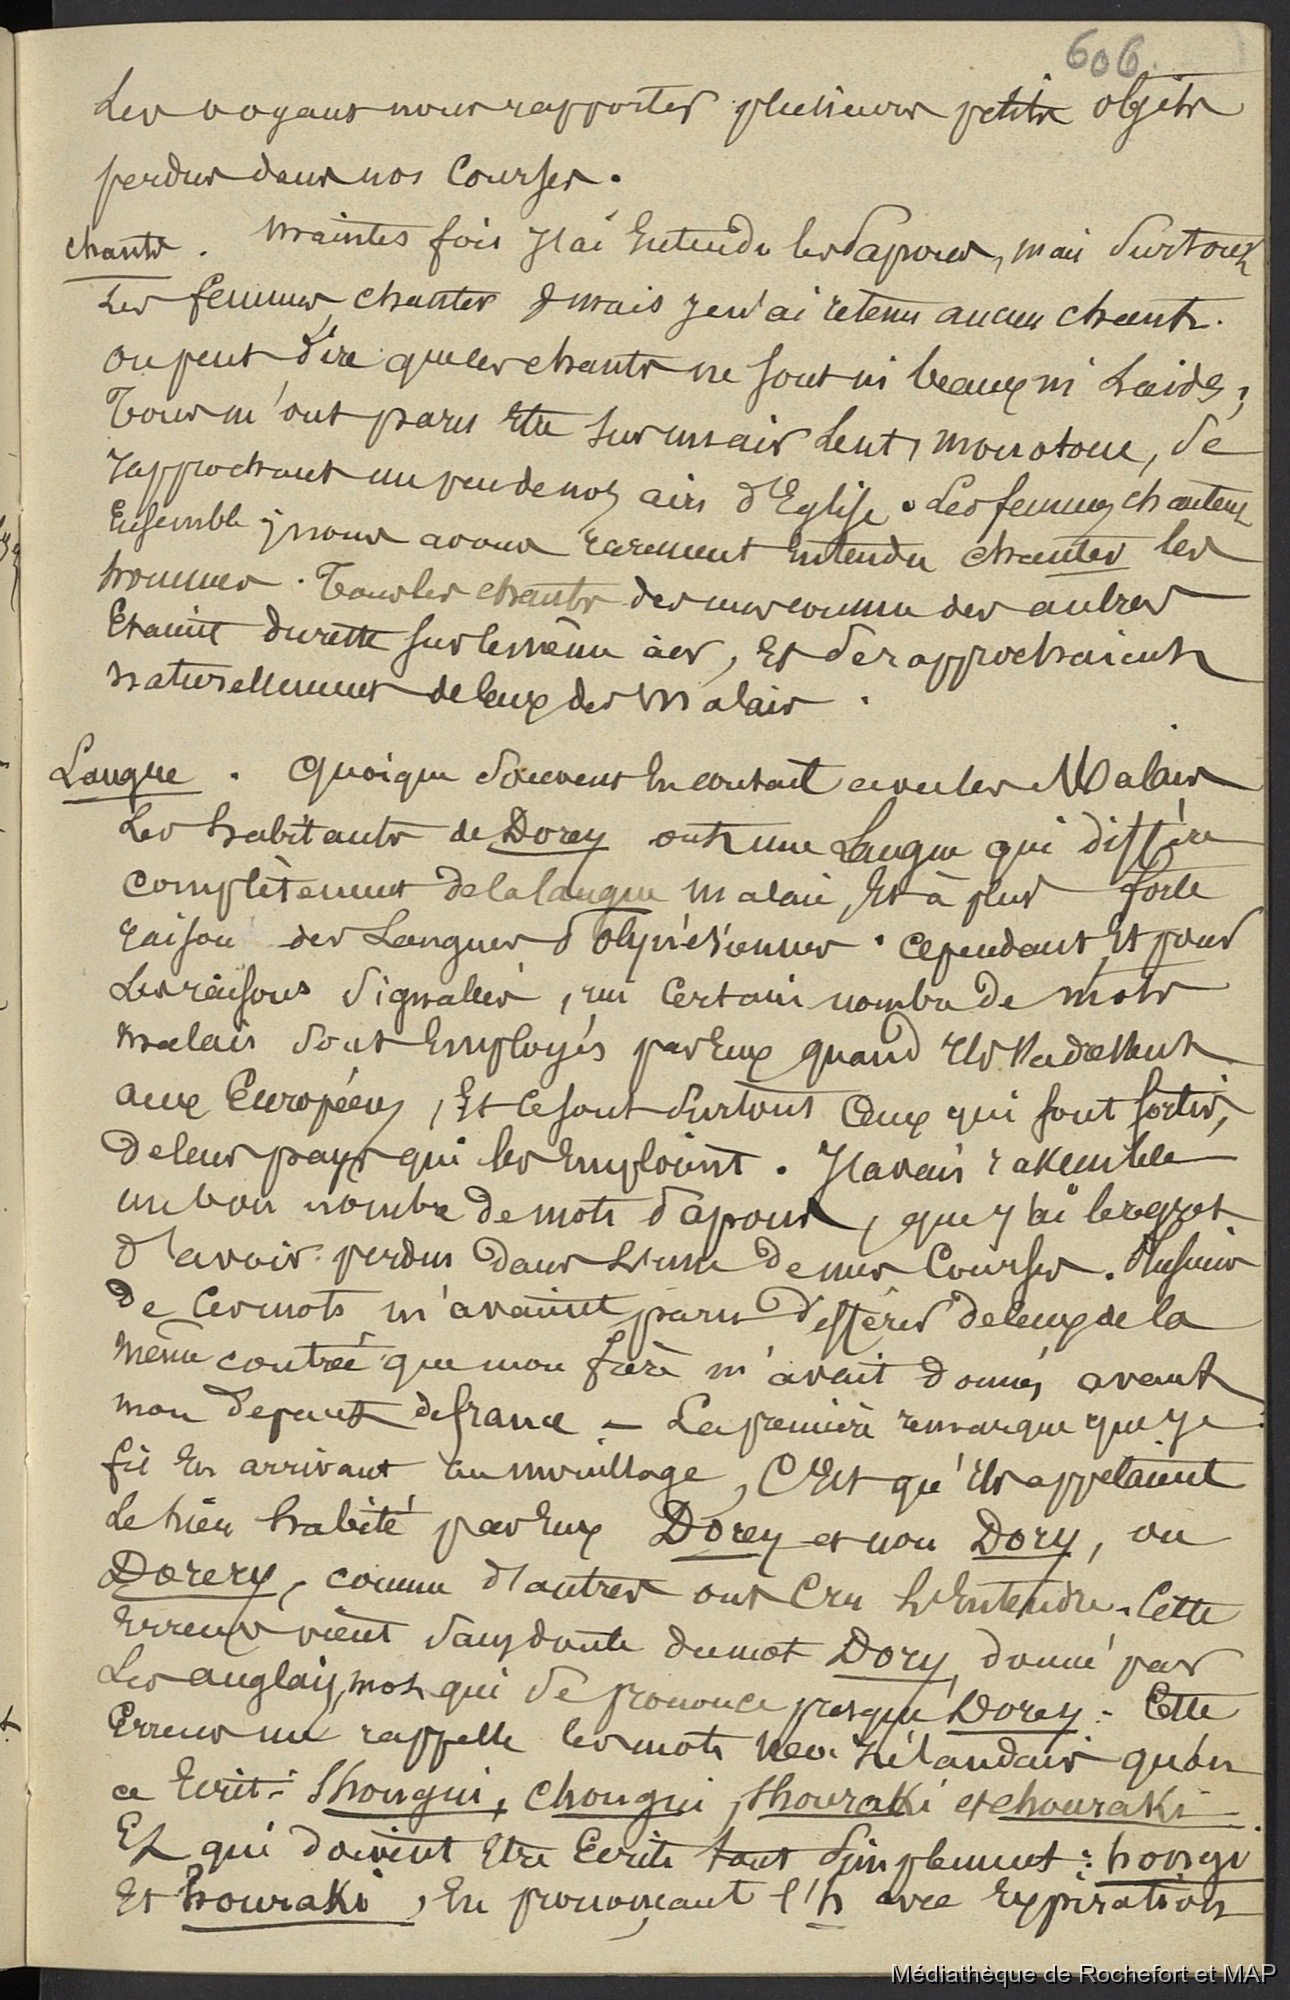 606.
Les voyant nous rapporter plusieurs petits objets
perdus dans nos Courses.
chants. Maintes fois J'ai Entendu les Papous, mais Surtout
Les femmes, chanter & mais je n'ai retenu aucun chant.
on peut dire que les chants ne sont ni beaux ni Laids;
Tous m'ont paru Etre sur un air Lent, monotone, se
rapprochant un peu de nos airs d'Eglise. Les femmes chantent
Ensemble; nous avons rarement Entendu chanter les
hommes. Tous les chants des uns comme des autres
Etaient durette sur le même air, Et se rapprochaient
naturellement de Ceux des Malais.
Langue. Quoique Souvent En contact avec les Malais
Les habitants de Dorey ont une Langue qui diffère
complètement de la langue malaie, Et à plus forte
raison des Langues Polynésiennes. Cependant, Et pour
Les raisons Signalées, un Certain nombre de mots
malais Sont Employés par Eux quand Ils s'adressent
aux Européens, Et ce sont Surtout Ceux qui sont sortis,
de leur pays qui les Emploient. J'avais rassemblé
un bon nombre de mots Papous, que j'ai le regret
d'avoir perdus dans L'une de mes Courses. Plusieurs
de Ces mots m'avaient paru différer de Ceux de la
même contrée que mon frère m'avait donnés avant
mon départ de france – La première remarque que je
fis En arrivant au mouillage, C'Est qu'Ils appelaient
Le lieu habité par Eux Dorey et non Dory, ou
Dorery, comme d'autres ont Cru L'Entendre. Cette
Erreur vient Sans doute du mot Dory, donné par
Les anglais, mot qui Se prononce presque Dorey. Cette
Erreur me rappelle les mots neo-zélandais qu'on
a Ecrit: Shongui, Chongui, Shouraki et chouraki
Et qui doivent Etre Ecrits tout Simplement: hongi
Et houraki, En prononçant l'h avec Expiration
Médiathèque de Rochefort et MAP